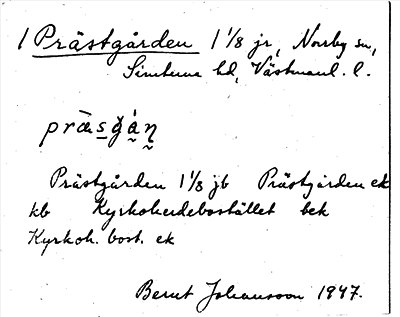 1 Prästgården 1 1/8 jr, Norrby sn,
Simtuna hd, Västmanl. l.
præ̀sgá̰n̰
Prästgården 1 1/8 jb Prästgården ek
kb Kyrkoherdebostället bek
Kyrkoh. bost. ek
Bernt Johansson 1947.